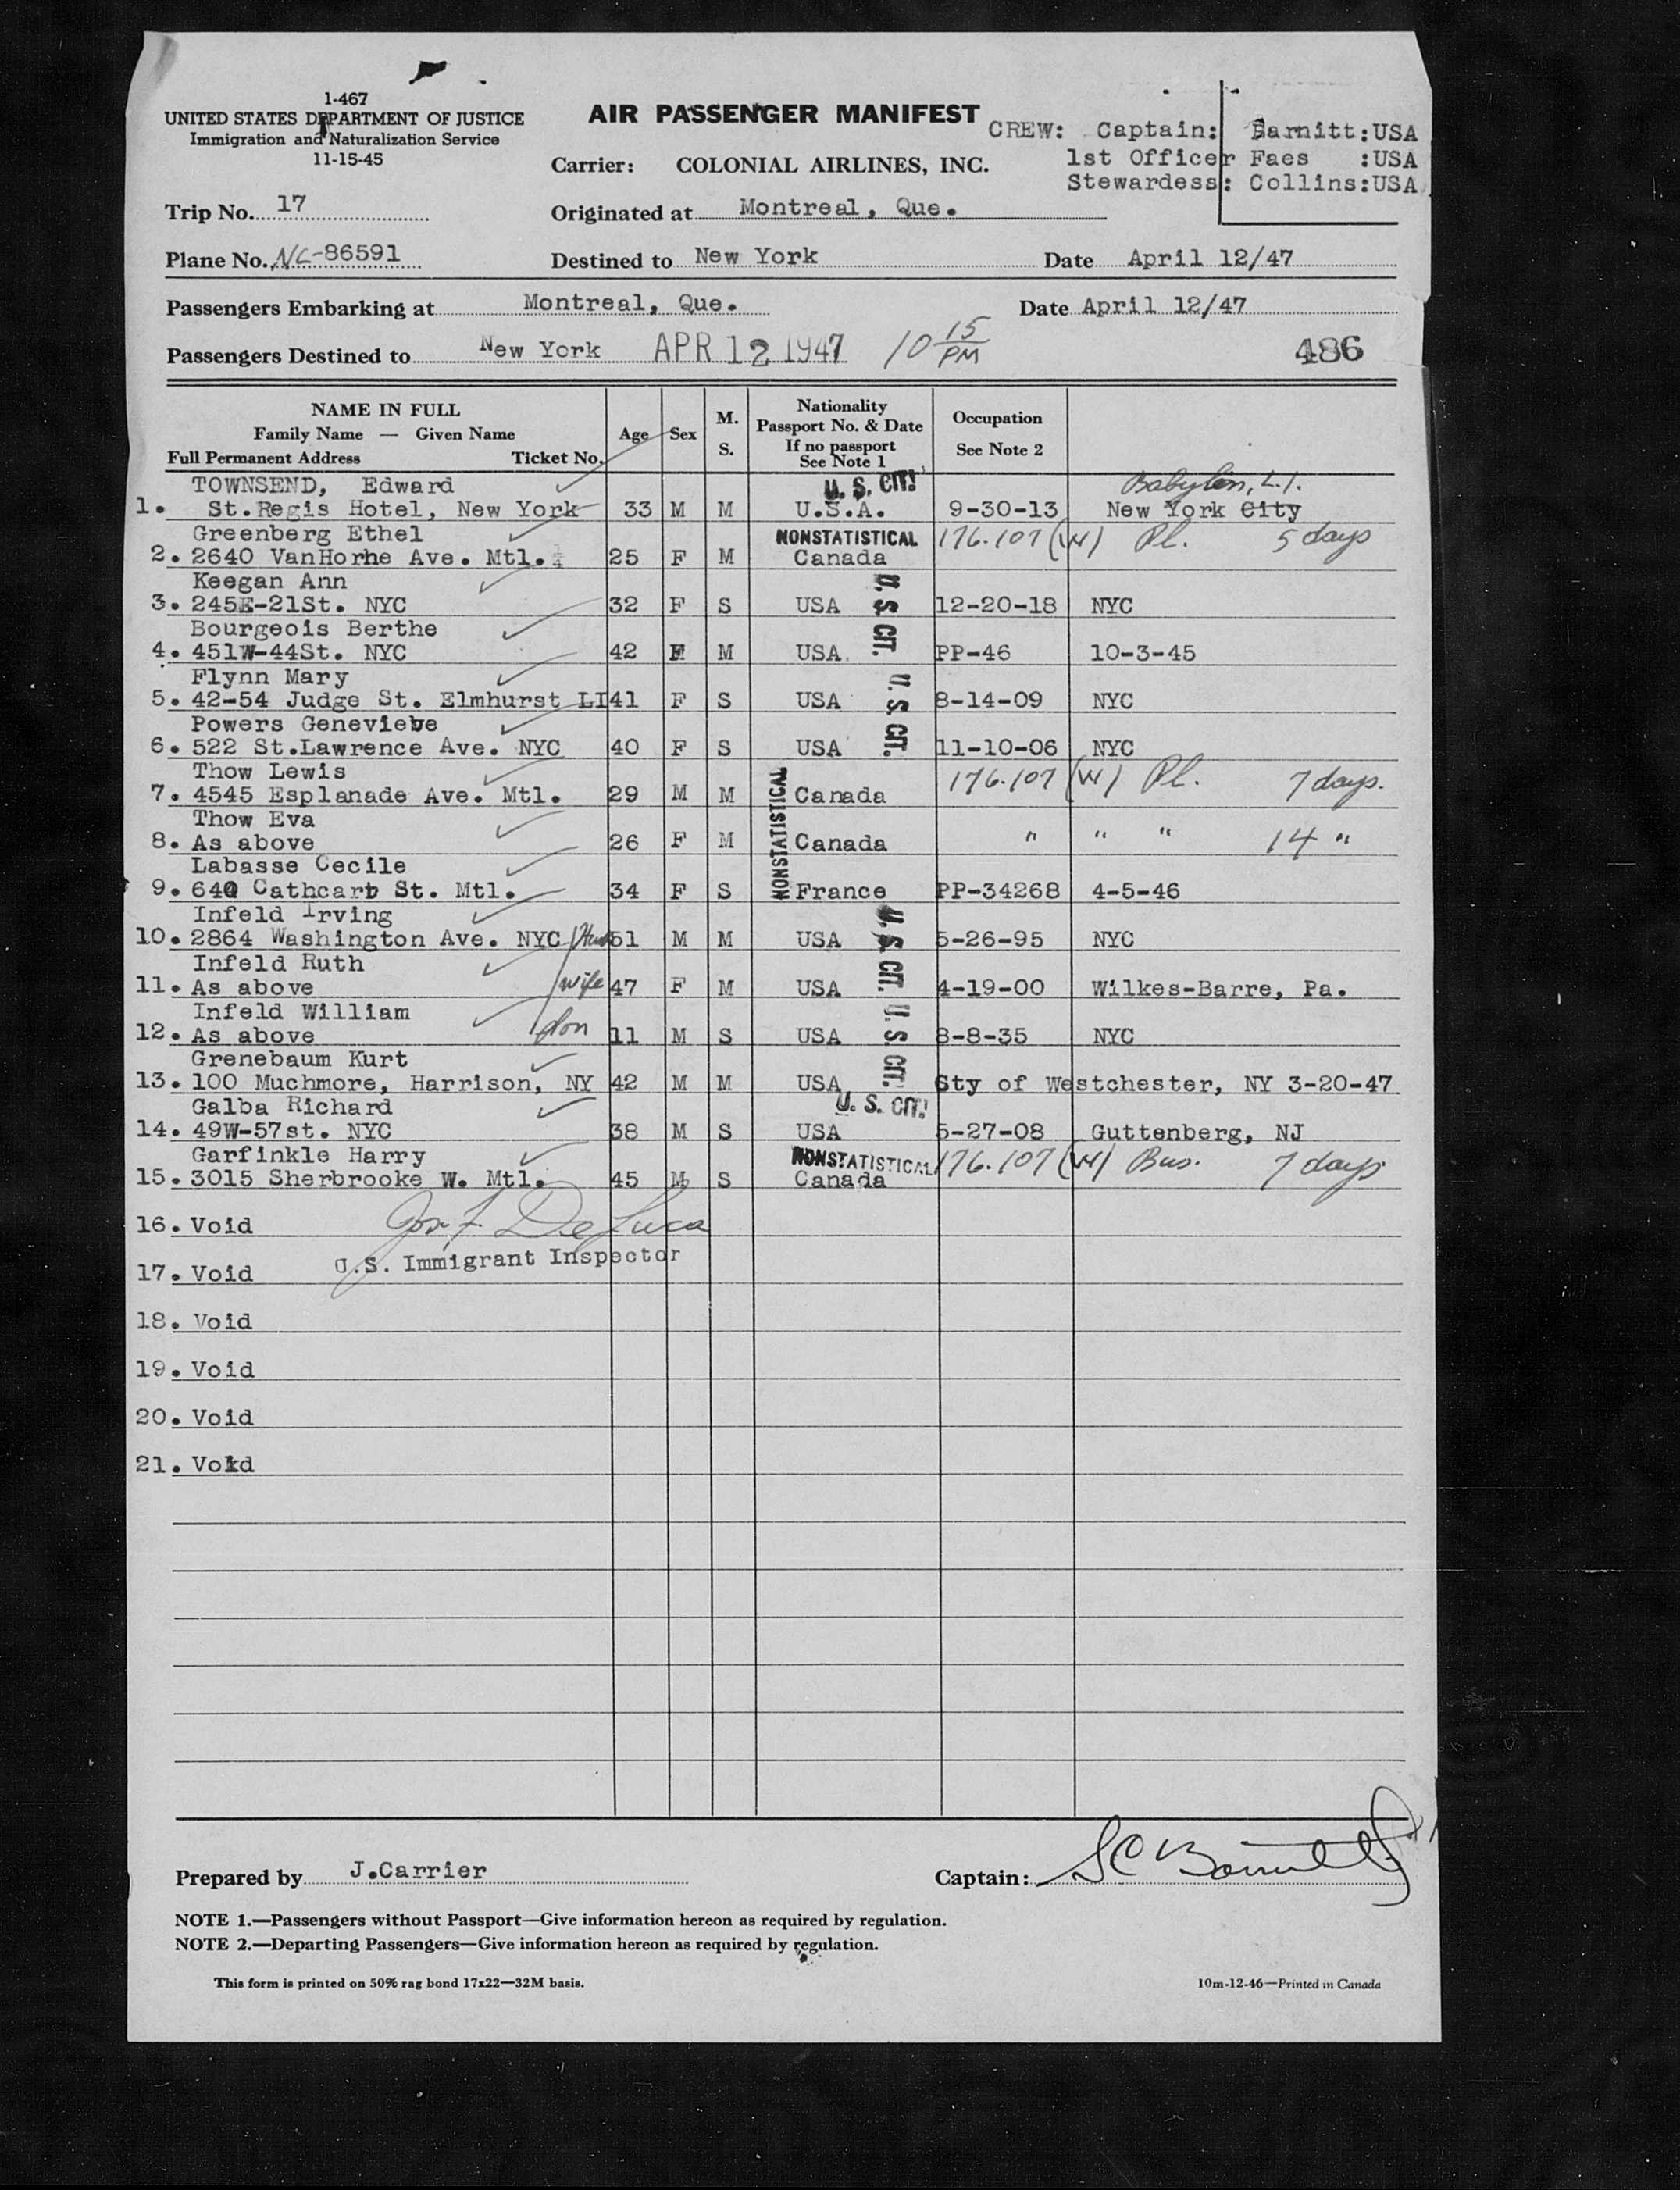 1-467
UNITED STATES DEPARTMENT OF JUSTICE
Immigration and Naturalization Service
11-15-45
AIR PASSENGER MANIFEST
CREW: Captain: Barnitt:USA
1st Officer Faes :USA
Stewardess: Collins:USA
Carrier: COLONIAL AIRLINES, INC.
Trip No. 17
Originated at Montreal, Que.
Plane No. NC-86591
Destined to New York Date April 12/47
Passengers Embarking at Montreal, Que. Date April 12/47
Passengers Destined to New York APR 12 1947 10 15 PM 486
NAME IN FULL
Family Name — Given Name
Full Permanent Address Ticket No.
Age Sex M. S.
Nationality
Passport No. & Date
If no passport
See Note 1
Occupation
See Note 2
TOWNSEND, Edward U. S. CIT. Babylon, L.I.
1. St.Regis Hotel, New York 33 M M U.S.A. 9-30-13 New York City
Greenberg Ethel NONSTATISTICAL 176.107 (W) Pl. 5 days
2. 2640 VanHorne Ave. Mtl. 25 F M Canada
Keegan Ann U. S. CIT.
3. 245E-21St. NYC 32 F S USA 12-20-18 NYC
Bourgeois Berthe
4. 451W-44St. NYC 42 F M USA PP-46 10-3-45
Flynn Mary U. S. CIT.
5. 42-54 Judge St. Elmhurst LI 41 F S USA 8-14-09 NYC
Powers Geneviebe
6. 522 St.Lawrence Ave. NYC 40 F S USA 11-10-06 NYC
Thow Lewis NONSTATISTICAL 176.107 (W) Pl. 7 days.
7. 4545 Esplanade Ave. Mtl. 29 M M Canada
Thow Eva
8. As above 26 F M Canada " " " 14 "
Labasse Cecile
9. 640 Cathcart St. Mtl. 34 F S France PP-34268 4-5-46
Infeld Irving U. S. CIT.
10. 2864 Washington Ave. NYC 51 M M USA 5-26-95 NYC
Infeld Ruth
11. As above wife 47 F M USA 4-19-00 Wilkes-Barre, Pa.
Infeld William U. S. CIT.
12. As above son 11 M S USA 8-8-35 NYC
Grenebaum Kurt
13. 100 Muchmore, Harrison, NY 42 M M USA Cty of Westchester, NY 3-20-47
Galba Richard U. S. CIT.
14. 49W-57st. NYC 38 M S USA 5-27-08 Guttenberg, NJ
Garfinkle Harry NONSTATISTICAL 176.107 (W) Bus. 7 days
15. 3015 Sherbrooke W. Mtl. 45 M S Canada
16. Void Jos. F. DeLuca
U.S. Immigrant Inspector
17. Void
18. Void
19. Void
20. Void
21. Void
Prepared by J.Carrier Captain: SC Barnitt
NOTE 1.—Passengers without Passport—Give information hereon as required by regulation.
NOTE 2.—Departing Passengers—Give information hereon as required by regulation.
This form is printed on 50% rag bond 17x22—32M basis. 10m-12-46—Printed in Canada